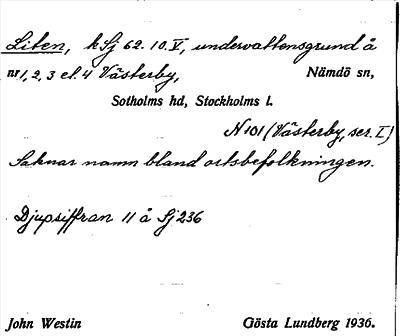 Liten, k Sj 62. 10. V, undervattensgrund å
nr 1, 2, 3 el. 4 Västerby, Nämdö sn,
Sotholms hd, Stockholms l.
N 101 (Västerby, ser. I)
Saknar namn bland ortsbefolkningen.
Djupsiffran 11 å Sj 236
John Westin Gösta Lundberg 1936.